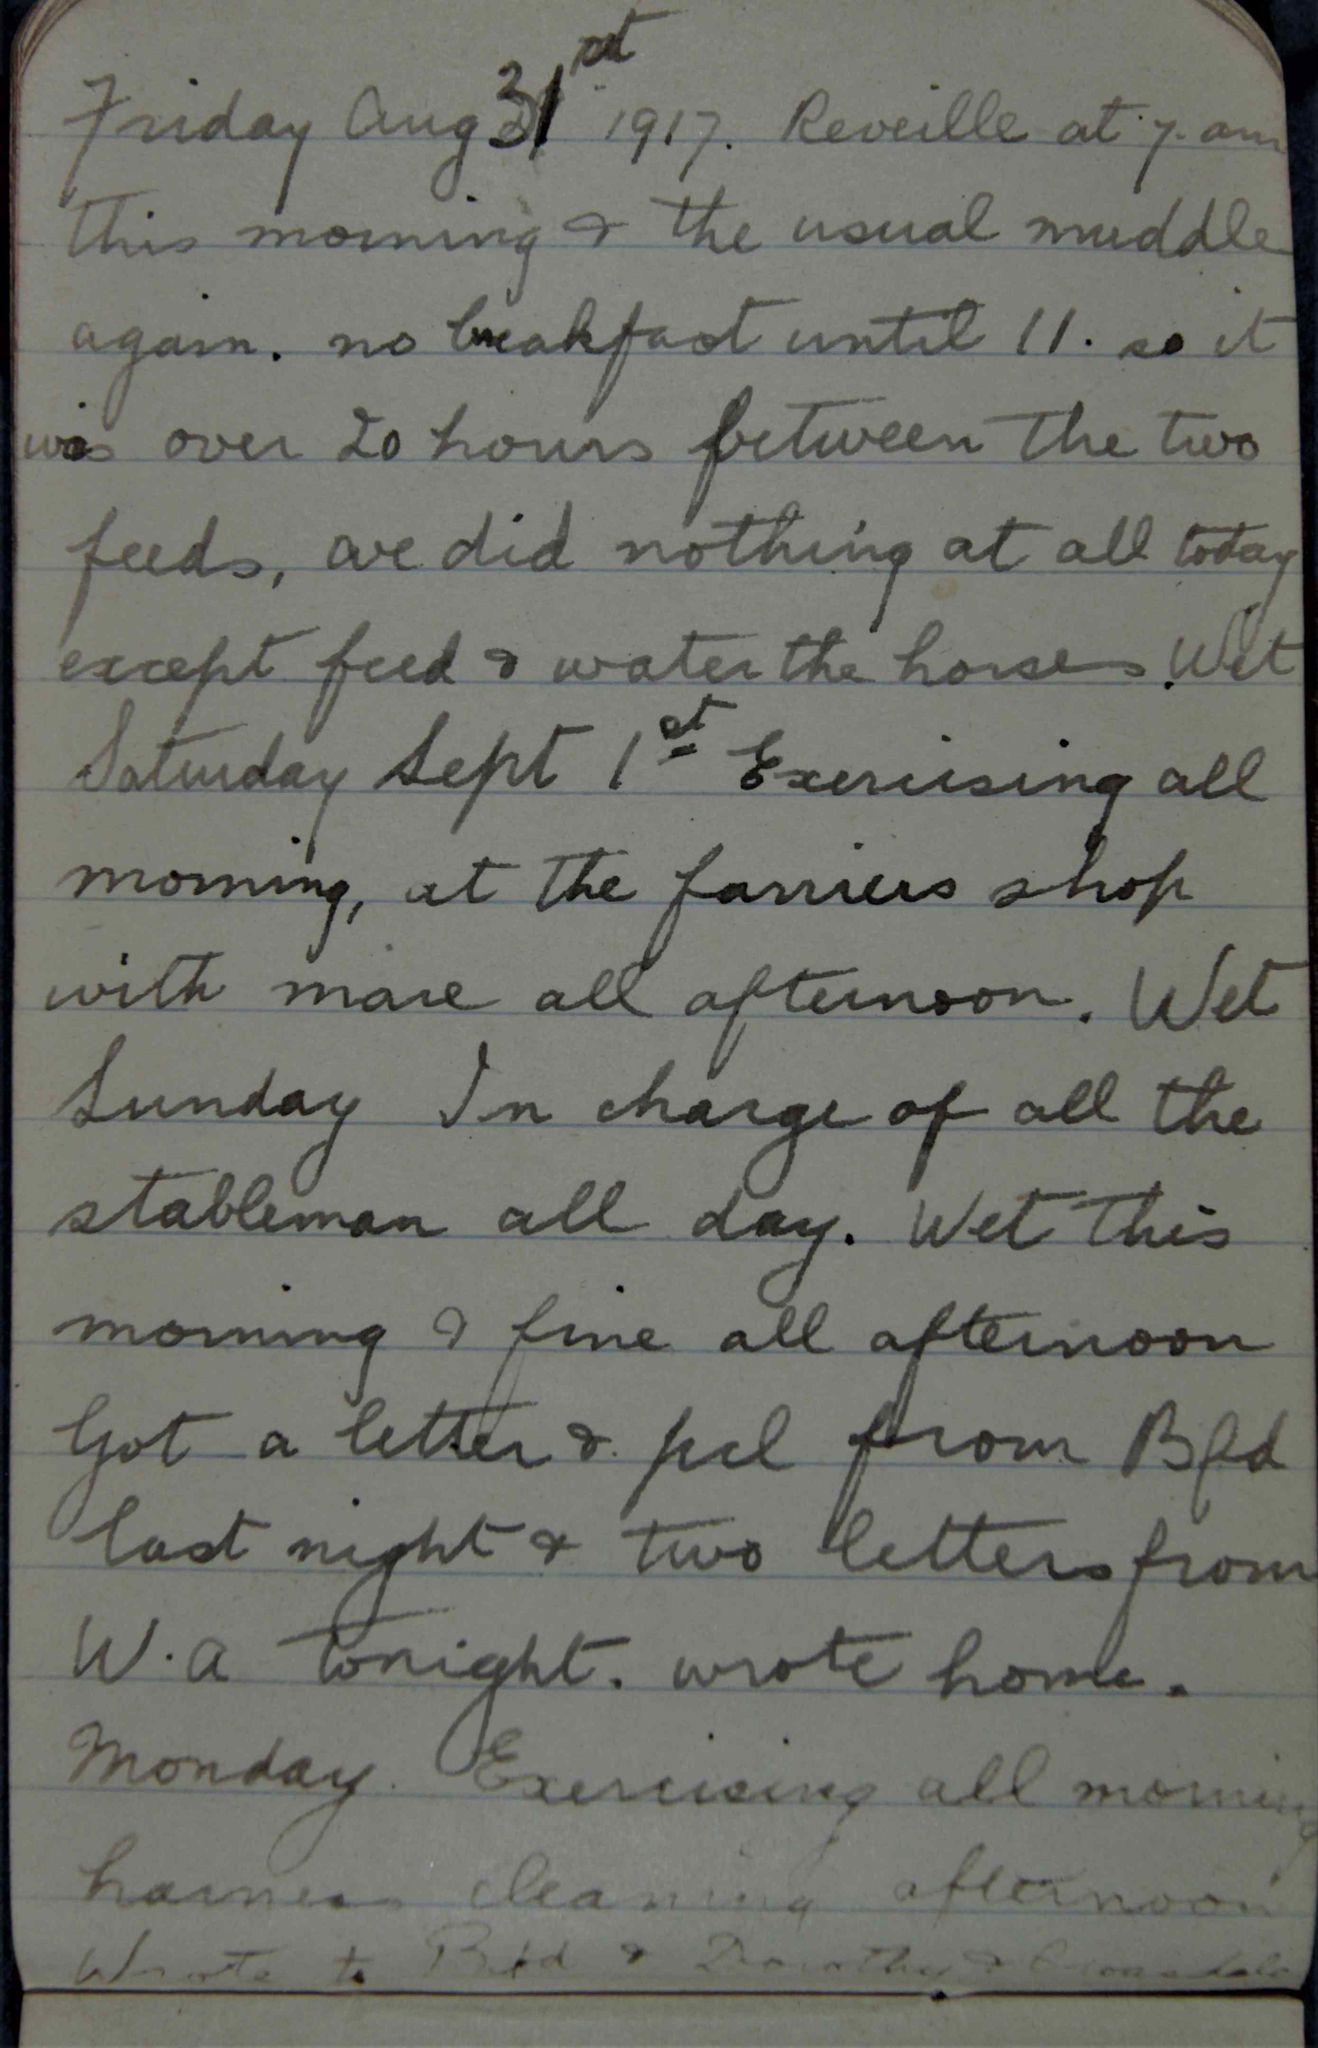 Friday Aug 31st 1917. Reveille at 7. am
this morning & the usual muddle
again. no breakfast until 11. so it
was over 20 hours between the two
feeds, we did nothing at all today
except feed & water the horses. Wet
Saturday Sept 1st Exercising all
morning, at the farriers shop
with mare all afternoon. Wet
Sunday In charge of all the
stableman all day. Wet this
morning & fine all afternoon
Got a letter & pcl from Bfd
last night & two letters from
W.a tonight. wrote home.
Monday. Exercising all morning
harness cleaning afternoon
Wrote to Bfd & Dorothy &